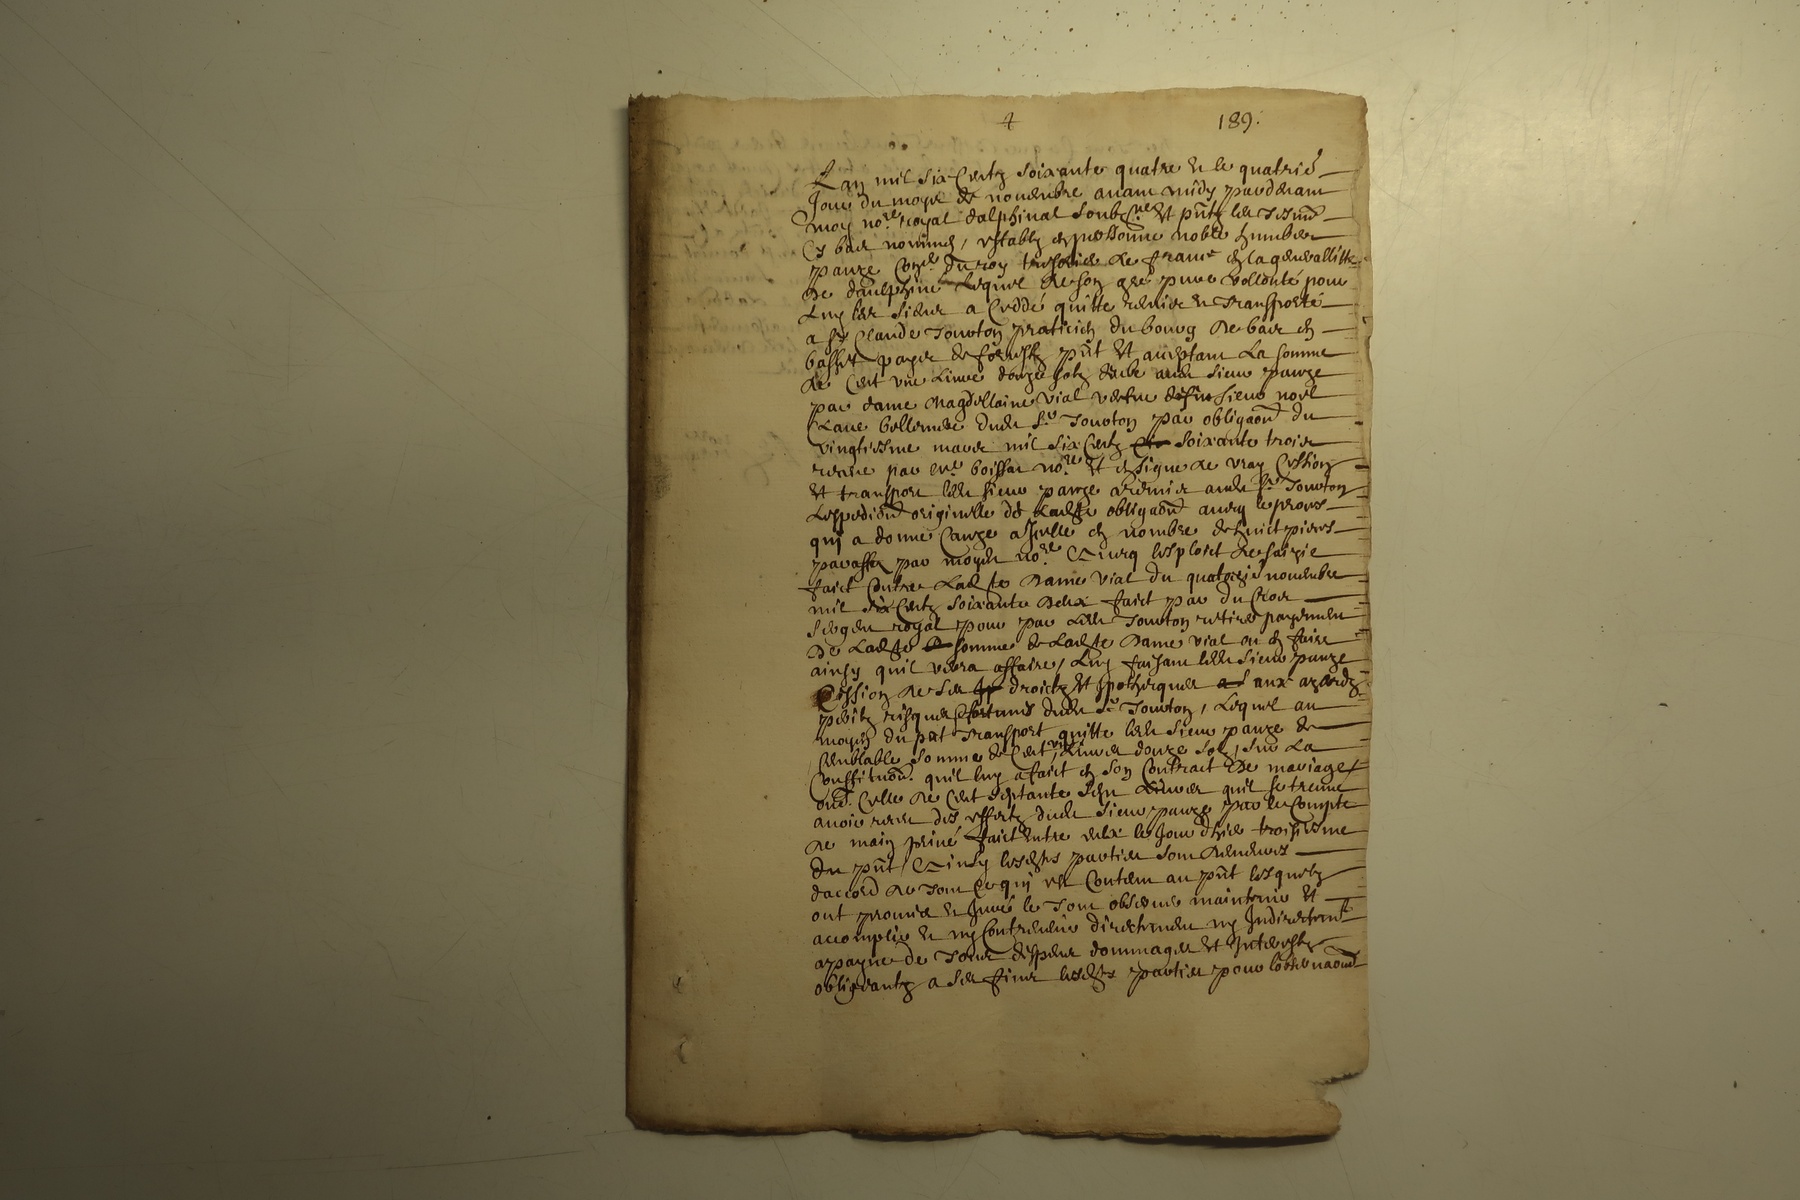 4 189.
Lan mil six Centz soixante quatre & le quatrie
Jour du moys de novembre avant midy pardevant
moy no.re royal dalphinal soubz.ne et pntz les tesm
Cy bas nommes, estably en personne noble humbert
pause Con.er du roy tresorier de france en la generallitte
de daulphiné Lequel de son gré pure vollonté pour
Luy les siens a Ceddé quitte remis et transporté
a Sr Claude Touvton praticien du bourg de bas en
basset payis de forestz pnt et acceptant La somme
de Cent une Livre douze solz deub audt sieur pauze
par dame Magdellaine vial vefve sieur noel
bellemere dudt Sr Touvton par obligaon du
vingtiesme mars mil six Centz soixante trois
receue par me boissat no.re et en signe de vray Cession
et transport ledt sieur pauze a remis audt Sr Touvton
Lexpedion originelle de Ladte obligaon avecq le proces
qui a donné Cauze a Icelle en nombre de huict pieces
paraffés par moydt no.re Et avecq lexploict de saizie
faict Contre Ladte dame vial du quatorzie novembre
mil six Centz soixante deux faict par du Cros
sergent royal pour par ledt Touvton retirer payement
de Ladte somme de Ladte dame vial ou en faire
ainsy quil verra affaire, Luy faisant ledt sieur pauze
Cession de ses droictz et ypotheques aux azardz
perilz risques & fortunes dudt Sr Touvton, Lequel au
moyen du pnt transport quitte ledt sieur pauze de
semblable somme de Cent une Livres douze solz, sur La
Constituon. quil luy a faict en son Contract de mariage
Celle de Cent septante sept Livres quil se treuve
avoir receu des effectz dudt sieur pauze par le Compte
de main privé faict entre eulx le Jour dhier troisiesme
du pnt, Et ainsy lesdtes parties sont demeures
daccord de tout Ce qui est Contenu au pnt lesquelz
ont promis et Juré le tout observer maintenir et
accomplir et ny Contrevenir directement ny Indirectemt
a payne de tous despens dommages et Interestz
obligeantz a ses fins lesdtes parties pour lobservaon